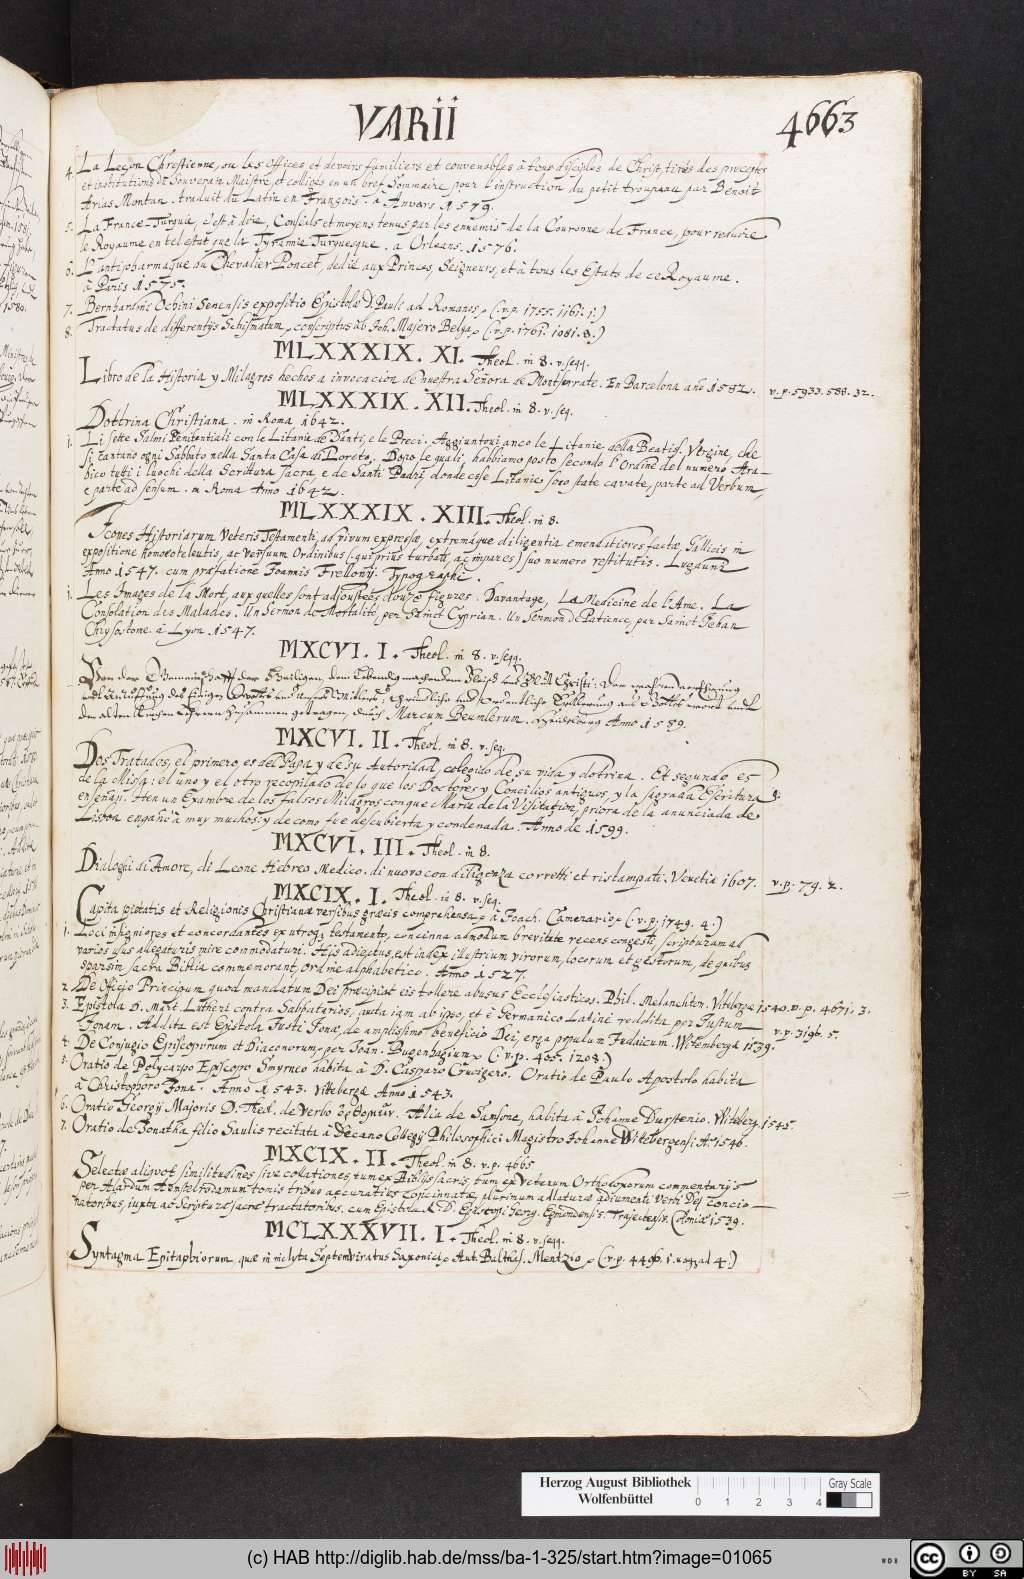 VARII
4663
4. La Leçon Chrestienne, ou les offices et devoirs familiers et convenables à tous disciples de Christ, tirés des preceptes
et institutions du Souverain Maistre, et colligés en un bref Sommaire, pour l'instruction du petit troupeau, par Benoist
Arias Montan. traduit du Latin en François. à Anvers 1579.
5. La France-Turquie, c'est à dire, Conseils et moyens tenus par les ennemis de la Couronne de France, pour reduire
le Royaume en tel estat que la Tyrannie Turquesque. à Orleans. 1576.
6. L'antipharmaque du Chevalier Poncet, dedié aux Princes, Seigneurs, et à tous les Estats de ce Royaume.
à Paris 1575.
7. Bernhardini Ochini Senensis expositio Epistolæ D. Pauli ad Romanos, (v.p. 1755. 1161. 1.)
8. Tractatus de differentijs Schismatum, conscriptus ab Joh. Majero Belga, (v.p. 1761. 1081. 8.)
MLXXXIX. XI. Theol. in 8. v. seqq.
Libro de la Historia y Milagros hechos a invocacion de nuestra Señora de Montserrate. En Barcelona año 1582. v.p. 5933. 588. 32.
MLXXXIX. XII. Theol. in 8. v. seq.
Dottrina Christiana. in Roma 1642.
1. Li sette Salmi Penitentiali con le Litanie de Santi, e le Preci. Aggiuntovi anco le Litanie della Beatiss. Vergine, che
si cantano ogni Sabbato nella Santa Casa di Loreto. Dopo le quali, habbiamo posto secondo l'Ordine del numero Ara-
bico tutti i luochi della Scrittura Sacra, e de Santi Padri, donde esse Litanie sono state cavate, parte ad Verbum,
e parte ad sensum. in Roma Anno 1642.
MLXXXIX. XIII. Theol. in 8.
Icones Historiarum Veteris Testamenti, ad vivum expressæ, extremaque diligentia emendatiores factæ, Gallicis in
expositione homoeoteleutis, ac versuum Ordinibus (qui prius turbati, ac impares) suo numero restitutis. Lugduni
Anno 1547. cum præfatione Joannis Frellonij. Typographi.
1. Les Images de la Mort, auxquelles sont adjoustées douze figures. Davantage, La Medicine de l'Ame. La
Consolation des Malades. Un Sermon de Mortalité, per Sainct Cyprian. Un Sermon de Patience, par Sainct Jehan
Chrysostome. à Lyon. 1547.
MXCVI. I. Theol. in 8. v. seqq.
Von der Gemeinschafft der Heiligen, dem Lebendigmachendem Fleisch
den alten Kirchen Lehrern zusammen getragen, durch Marcum Beumlerum. Heidelberg Anno 1589.
MXCVI. II. Theol. in 8. v. seq.
Dos Tratados, el primero, es del Papa y de su Autoridad, colegido de su vida y dotrina. Et segundo es
de la Missa: el uno y el otro recopilado de lo que los Doctores y Concilios antiguos, y la sagrada Escritura
enseñan. Iten un Exambre de los falsos Milagros con que Maria de la Visitation, priora de la anunciada de
Lisboa engañò à muy muchos: y de como fue descubierta y condenada. Anno de 1599.
MXCVI. III. Theol. in 8.
Dialoghi di Amore, di Leone Hebreo Medico. di nuovo con diligenza corretti et ristampati. Venetia 1607. v.p. 79. 2.
MXCIX. I. Theol. in 8. v. seq.
Capita pietatis et Religionis Christianæ versibus græcis comprehensa, à Joach. Camerario, (v.p. 1749. 4.)
1. Loci insigniores et concordantes ex utroq; testamento, concinna admodum brevitate recens congesti, scripturam ad
varios usus allegaturis mire commodaturi. Hijs adiectus est index illustrium virorum, locorum et gestorum, de quibus
sparsim sacra Biblia commemorant, ordine alphabetico. Anno 1527.
2. De Officio Principum quod mandatum Dei præcipiat eis tollere abusus Ecclesiasticos. Phil. Melanchton. Witebergæ 1540. v.p. 4671. 3.
3. Epistola D. Mart. Lutheri contra Sabbatarios, iam ab ipso, et è Germanico Latinè reddita per Justum
Jonam. Addita est Epistola Justi Jonæ, de amplissimo beneficio Dei, erga populum Judaicum. Witembergæ 1539. v.p. 3196. 5.
4. De Conjugio Episcoporum et Diaconorum, per Joan. Bugenhagium, (v.p. 405. 1208.)
5. Oratio de Polycarpo Episcopo Smyrneo habita à D. Casparo Crucigero. Oratio de Paulo Apostolo habita
à Christophoro Jona. Anno 1543. Vitebergæ Anno 1543.
6. Oratio Georgij Majoris D. Theol. de Verbo ὀρθοτομεῖν. Alia de Samsone, habita à Johanne Durstenio. Witeberg. 1545.
7. Oratio de Jonatha filio Saulis recitata à Decano Collegij Philosophici Magistro Johanne Witebergensi. Aō. 1546.
MXCIX. II. Theol. in 8. v.p. 4665.
Selectæ aliquot similitudines sive collationes, tum ex Biblijs sacris, tum ex Veterum Orthodoxorum commentarijs
per Alardum Amstelrodamum tomis tribus accuratius concinnatæ, plurimum allaturæ adiumenti Verbi Dei Concio-
natoribus, iuxta ac Scripturæ sacræ tractatoribus. cum Epistola R. D. Episcopi Georg. Egmondensis. Trajectensis. Coloniæ 1539.
MCLXXXVII. I. Theol. in 8. v. seqq.
Syntagma Epitaphiorum, quæ in inclyta Septemviratus Saxonici, Aut. Balthas. Mentzio, (v.p. 4496. 1. usq; ad 4.)
Herzog August Bibliothek
Wolfenbüttel
0 1 2 3 4
Gray Scale
(c) HAB http://diglib.hab.de/mss/ba-1-325/start.htm?image=01065
WDB
cc BY SA